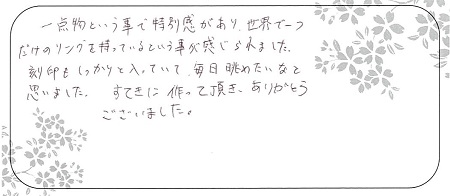 一点物という事で特別感があり、世界で一つ
だけのリングを持っているという事が感じられました。
刻印もしっかりと入っていて、毎日眺めたいなと
思いました。 すてきに作って頂き、ありがとう
ございました。